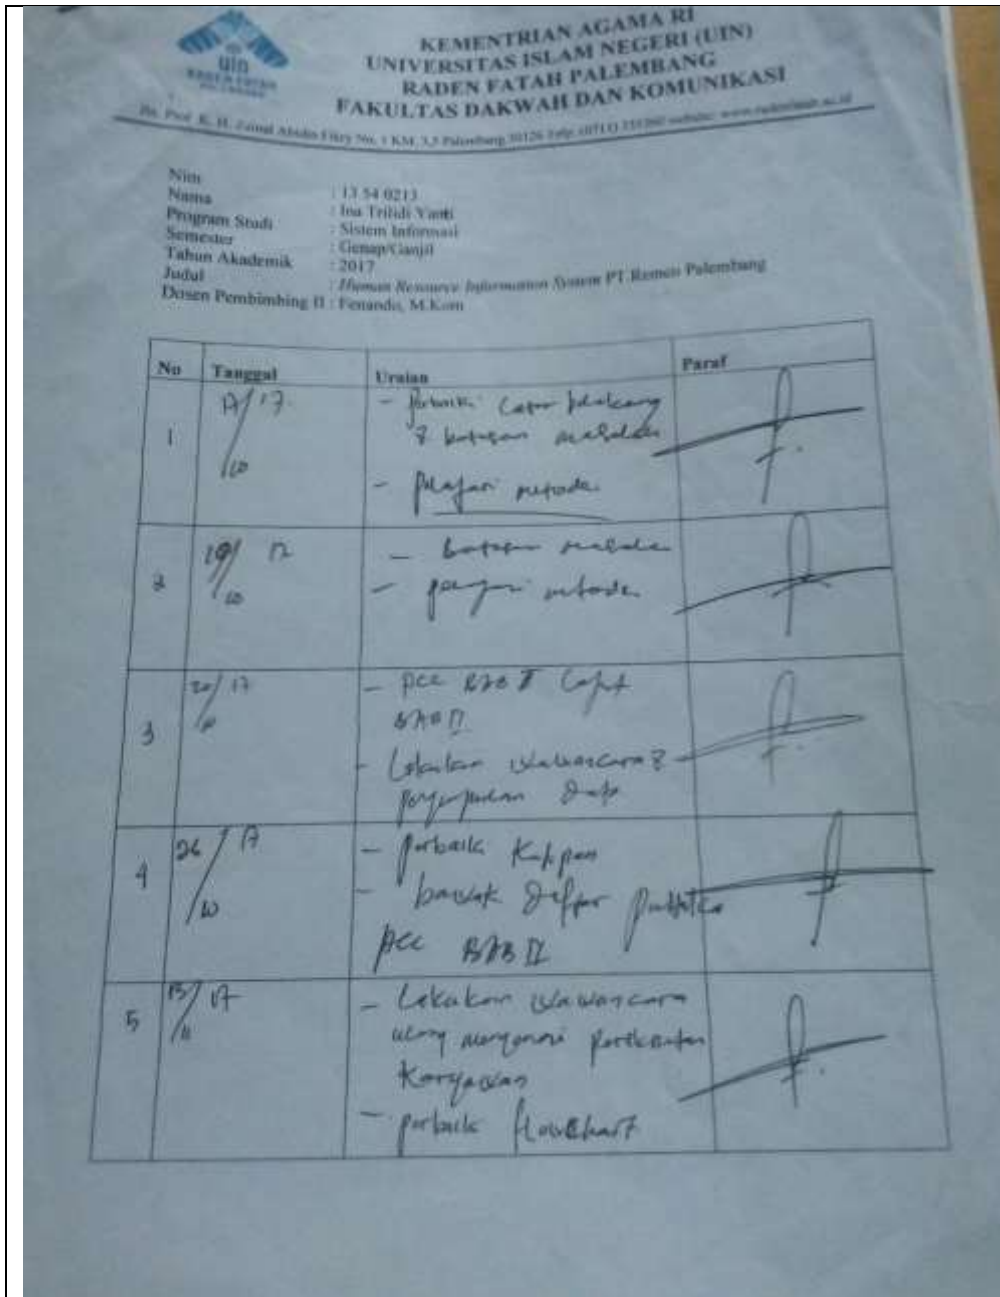 uin
RADEN FATAH
PALEMBANG
KEMENTRIAN AGAMA RI
UNIVERSITAS ISLAM NEGERI (UIN)
RADEN FATAH PALEMBANG
FAKULTAS DAKWAH DAN KOMUNIKASI
Jln. Prof. K. H. Zainal Abidin Fikry No. 1 KM. 3,5 Palembang 30126 Telp. (0711) website:
Nim : 13 54 0213
Nama : Ina Trifidi Yanti
Program Studi : Sistem Informasi
Semester : Genap/Ganjil
Tahun Akademik : 2017
Judul : Human Resource Information System PT. Remco Palembang
Dosen Pembimbing II : Fenando, M.Kom
No Tanggal Uraian Paraf
1 17/10 17 - perbaiki latar belakang
& batasan masalah
- pelajari metode
2 19/10 17 - batasan masalah
- pelajari metode
3 20/10 17 - ACC BAB I
BAB II
- Lakukan wawancara &
pengumpulan data
4 26/10 17 - perbaiki kutipan
- daftar pustaka
ACC BAB II
5 13/11 17 - Lakukan wawancara
ulang mengenai
karyawan
- perbaiki flowchart